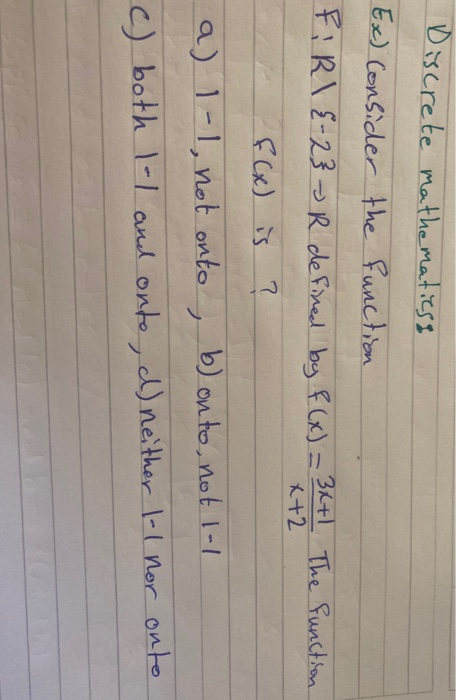 Discrete mathematics
Ex) Consider the function
F: R \ {-2} → R defined by f(x) = 3x+1/x+2 The function
f(x) is ?
a) 1-1, not onto, b) onto, not 1-1
c) both 1-1 and onto, d) neither 1-1 nor onto